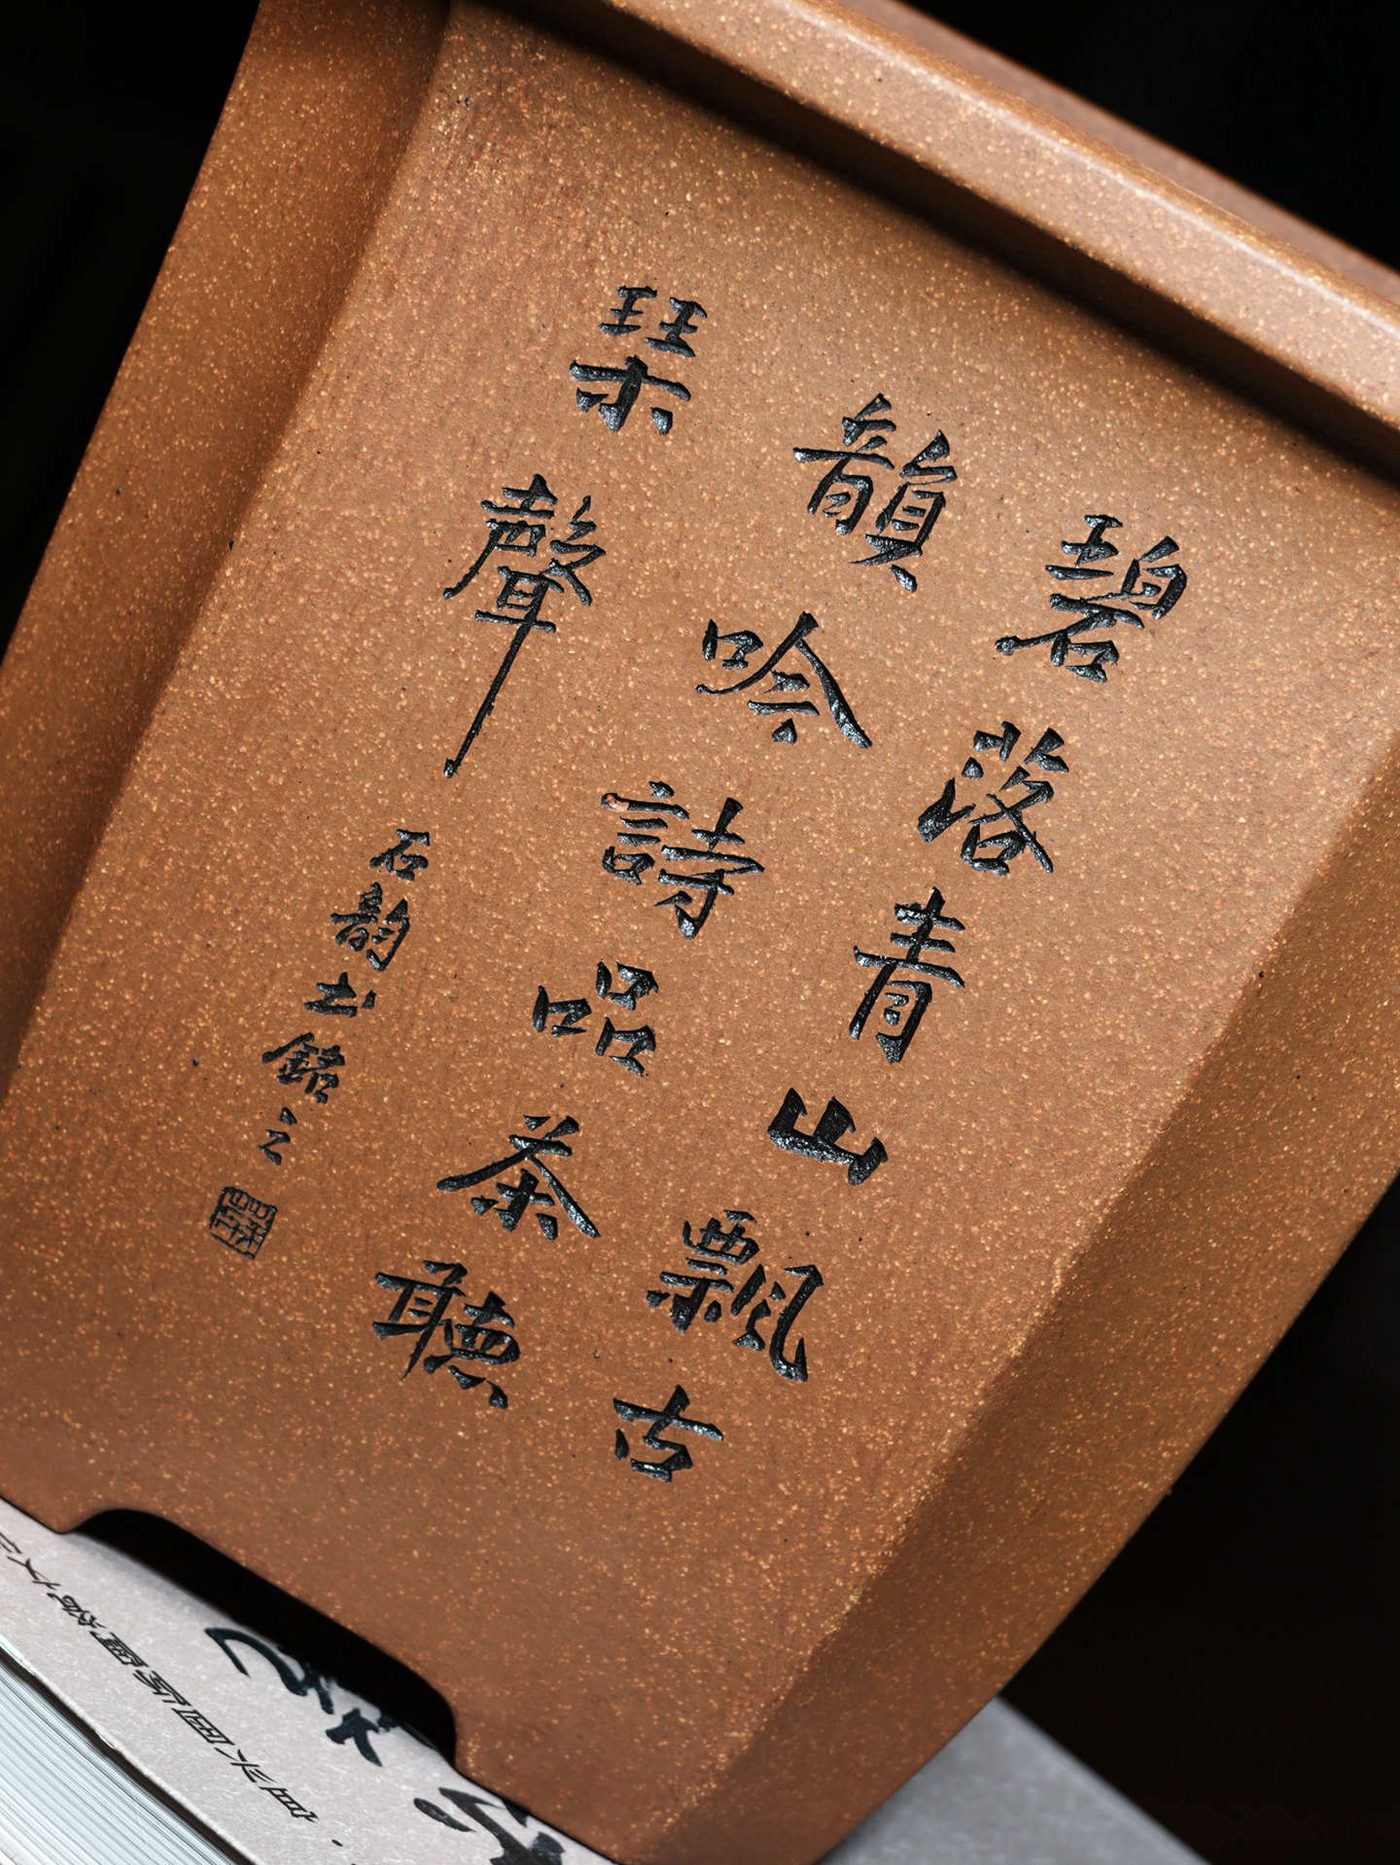 碧落青山飄古
韻吟詩品茶聽
琹聲
石韵土銘之